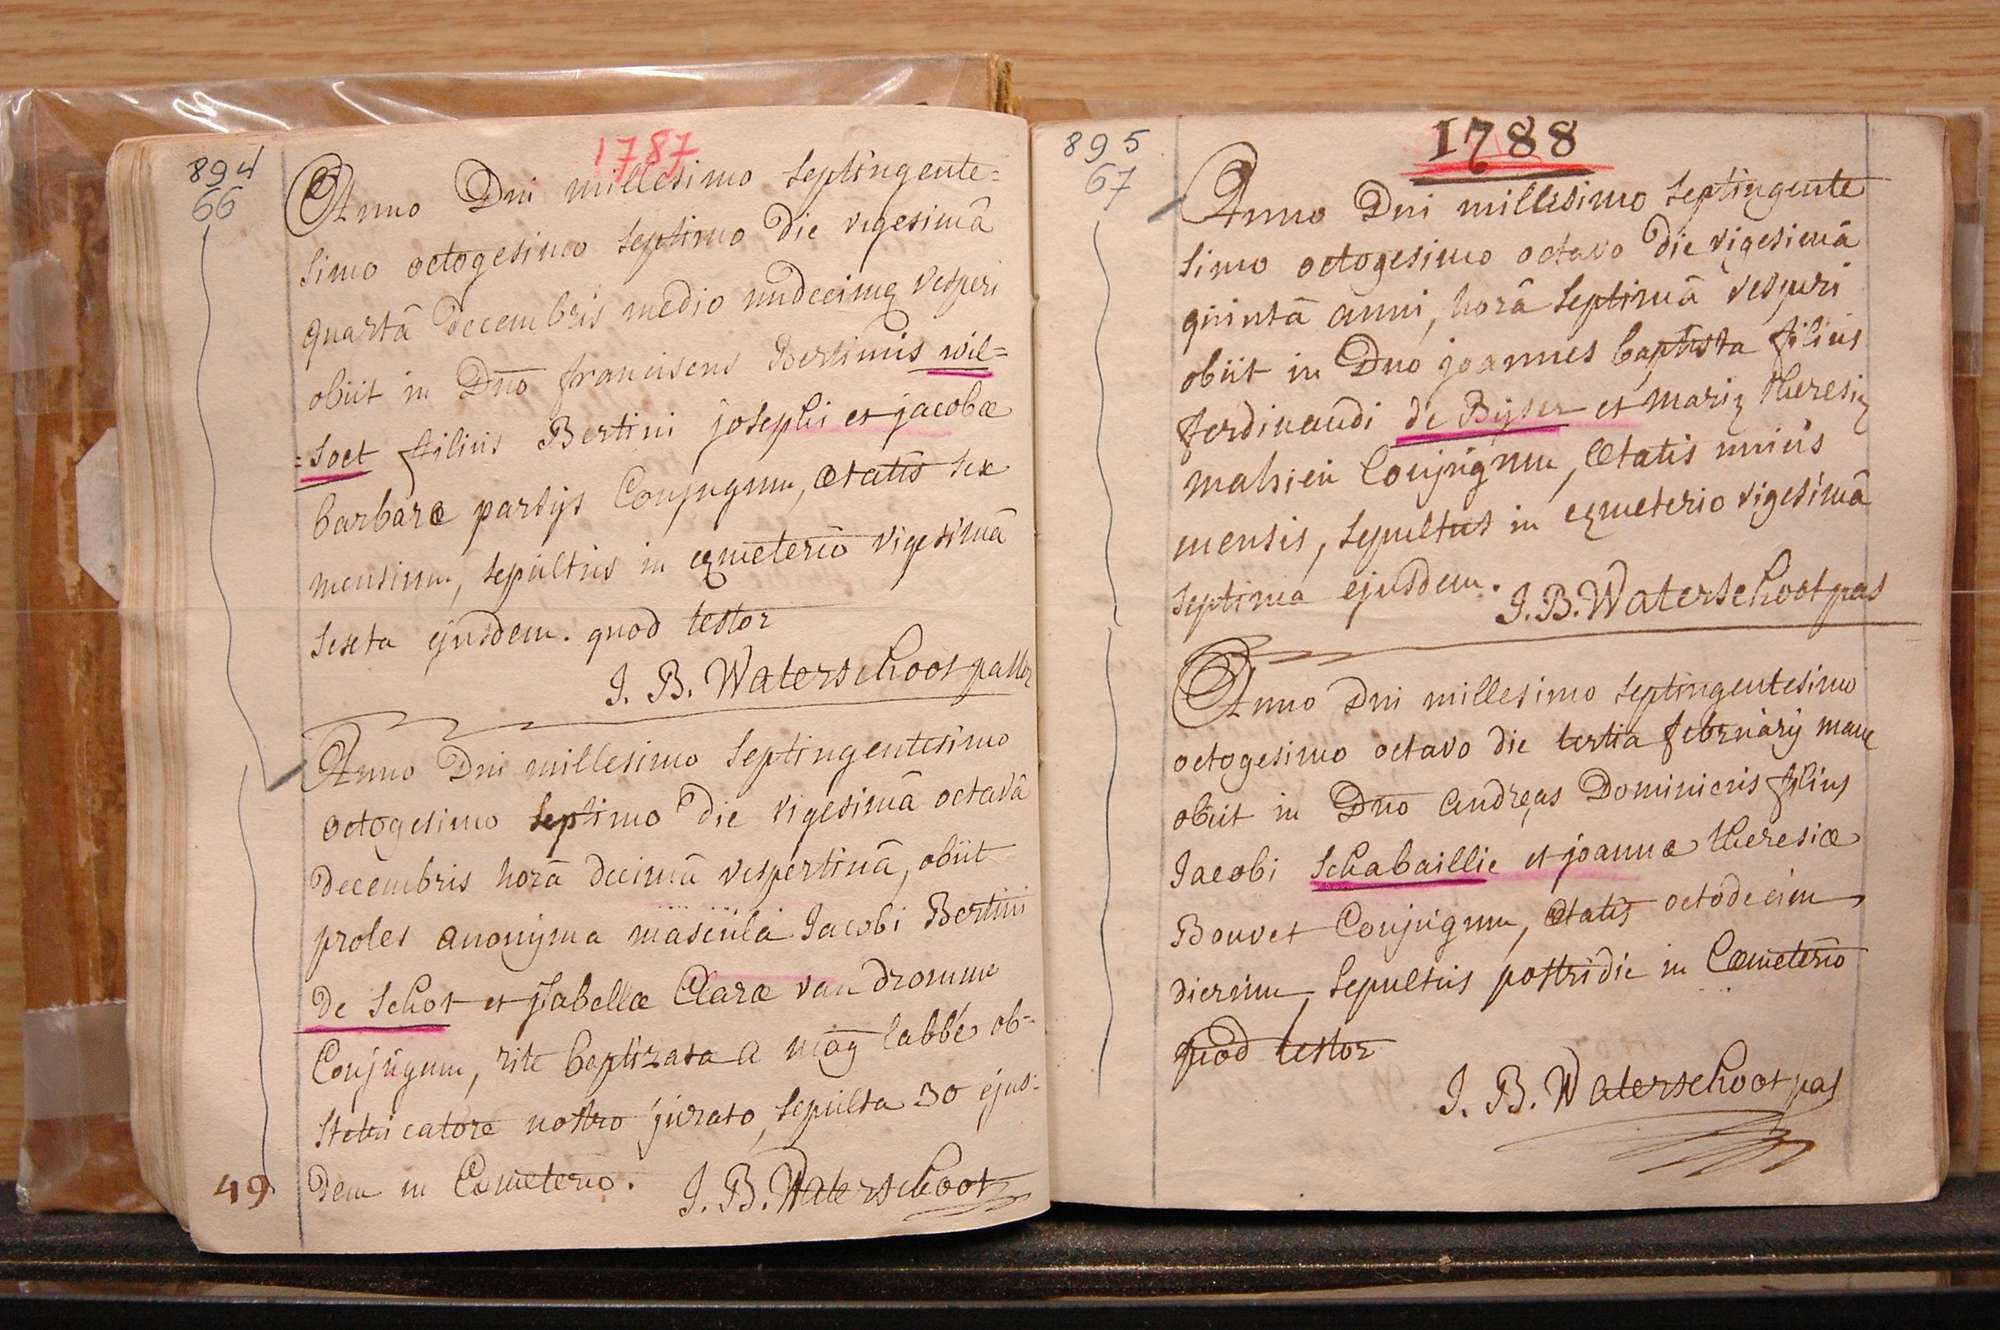 894
66
1787
Anno Dni millesimo septingente=
simo octogesimo septimo die vigesimâ
quartâ decembris medio undecimæ vesperi
obiit in Dno franciscus Bertinus wil=
=soet filius Bertini josephi et jacobæ
barbaræ partijs Conjugum, ætatis sex
mensium, sepultus in cæmeterio vigesimâ
sexta ejusdem. quod testor
J. B. Waterschoot pastor
Anno Dni millesimo septingentesimo
octogesimo septimo die vigesimâ octavâ
decembris horâ decimâ vespertinâ, obiit
proles anonyma mascula Jacobi Bertini
de Schot et jsabellæ Claræ van dromme
Conjugum, rite baptizata a mag labbé ob-
stetricatore nostro jurato, sepulta 30 ejus-
dem in Cæmeterio.
J. B. Waterschoot
49
895
67
1788
Anno Dni millesimo septingente
simo octogesimo octavo die vigesimâ
quintâ anni, horâ septimâ vesperi
obiit in Dno joannes baptista filius
ferdinandi de Bijser et mariæ theresiæ
mahieu Conjugum, Ætatis unius
mensis, sepultus in cæmeterio vigesimâ
septima ejusdem.
J. B. Waterschoot pas
Anno Dni millesimo septingentesimo
octogesimo octavo die tertia februarij mane
obiit in Dno andreas Dominicus filius
Jacobi Schabaillie et joannæ theresiæ
Bouvet Conjugum, ætatis octodecim
dierum, sepultus postridie in Cæmeterio
quod testor
J. B. Waterschoot pas